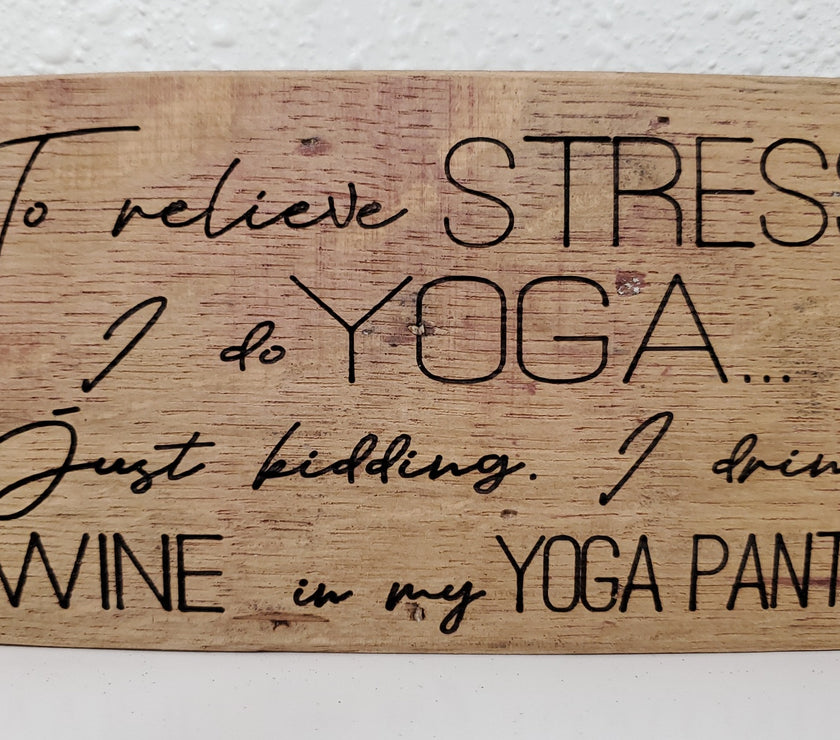 To relieve STRESS
I do YOGA...
Just kidding. I drin
WINE in my YOGA PANT